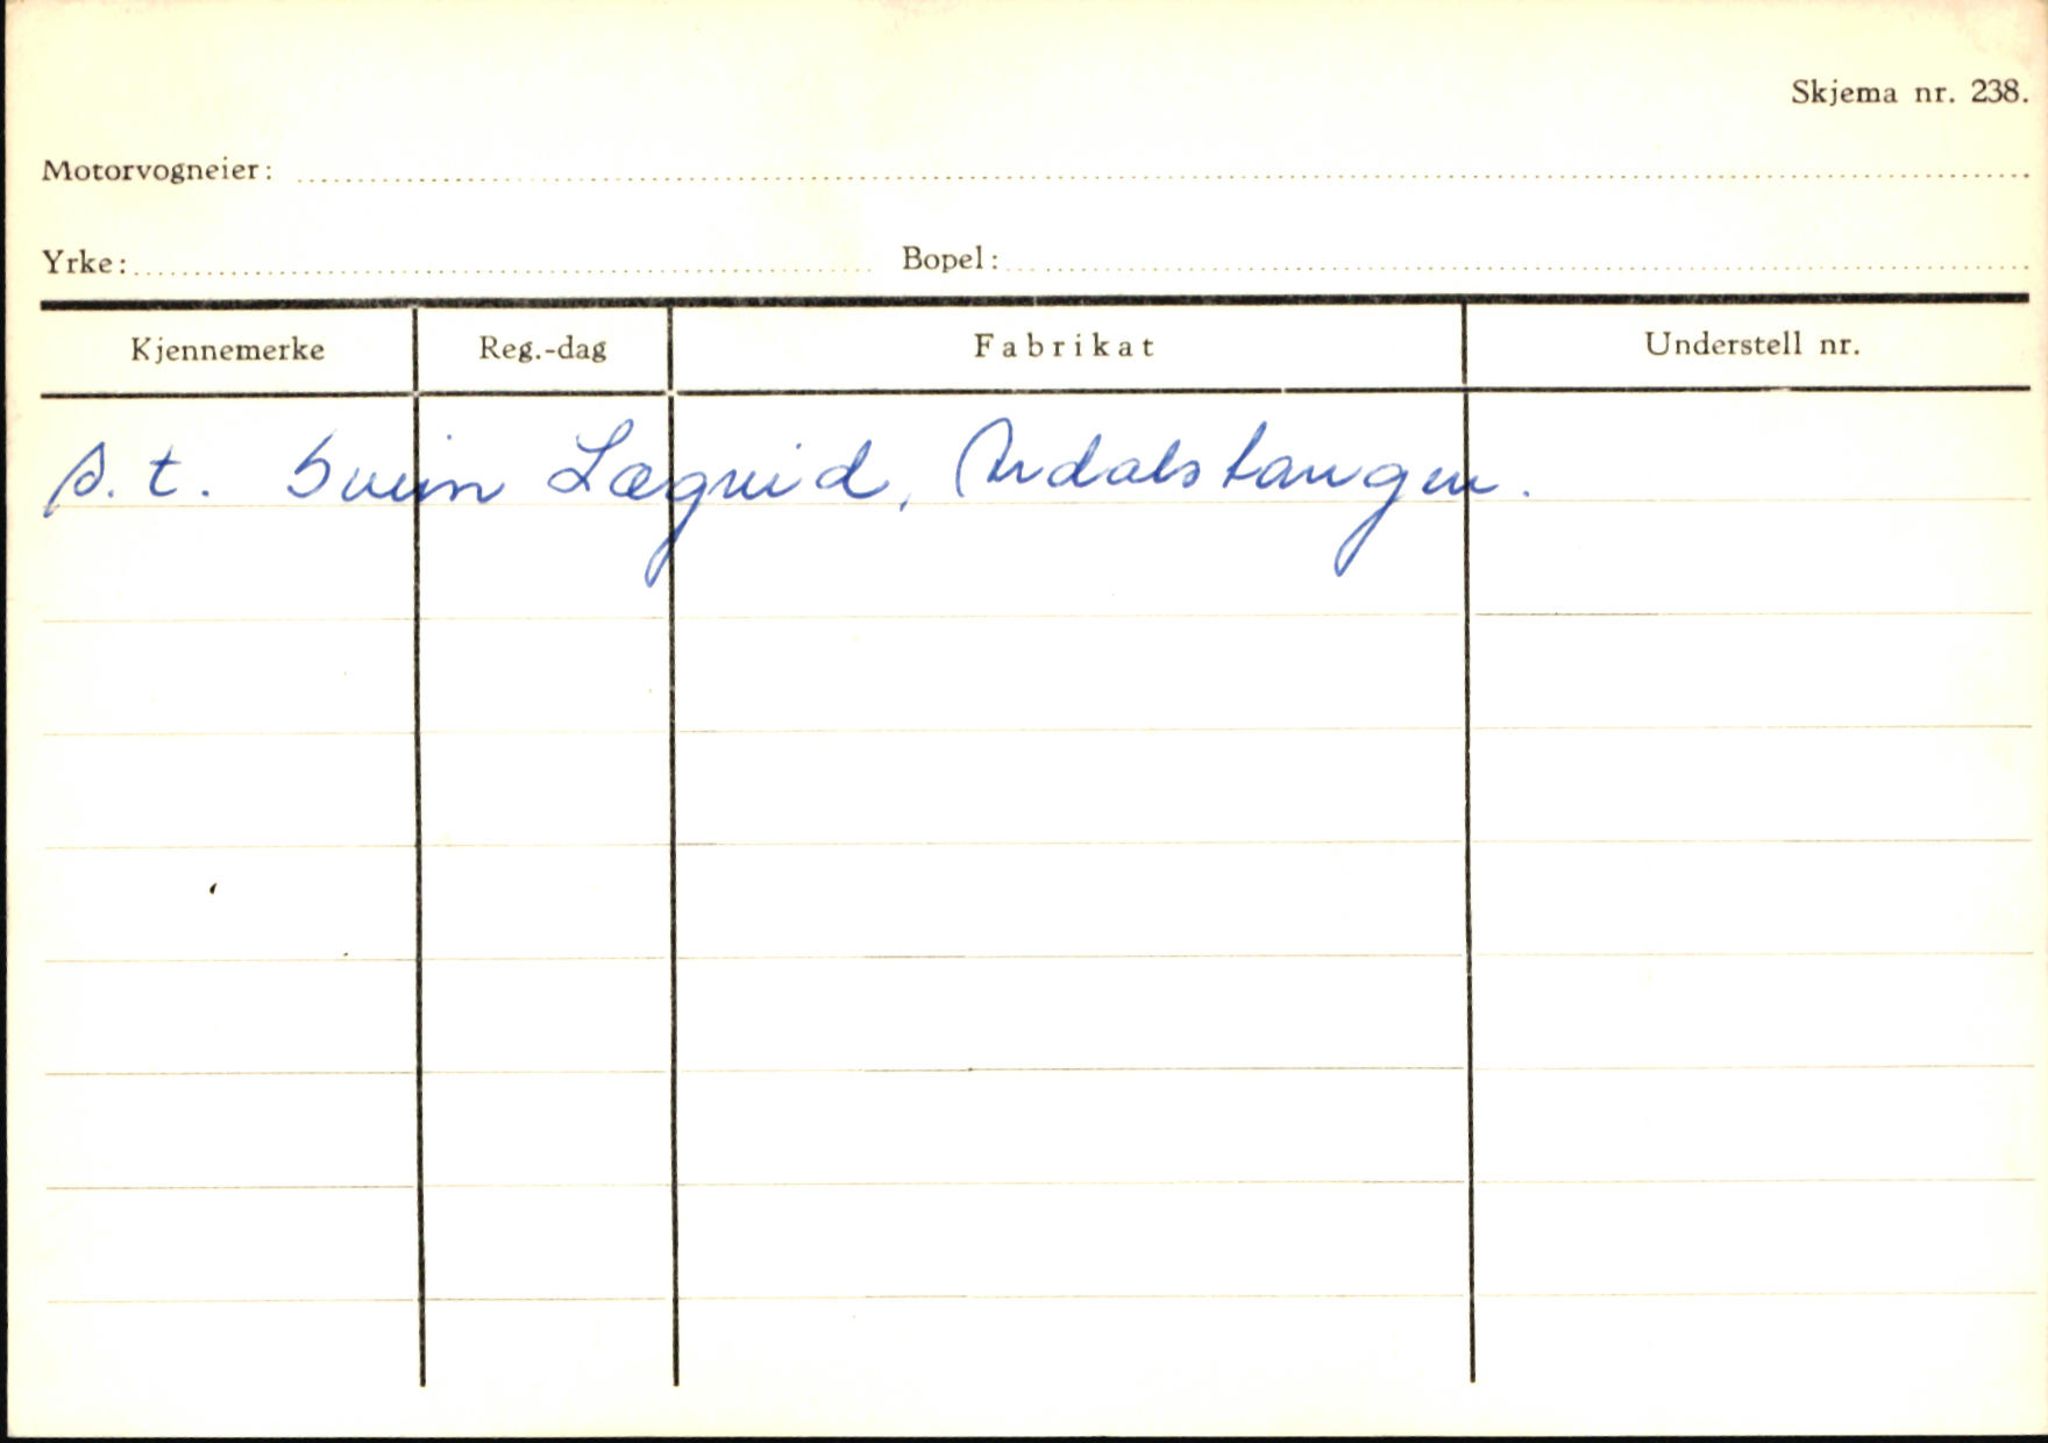 Skjema nr. 238.
Motorvogneier:
Yrke: Bopel:
Kjennemerke Reg.-dag Fabrikat Understell nr.
s. t. Svein Lægreid, Årdalstangen.